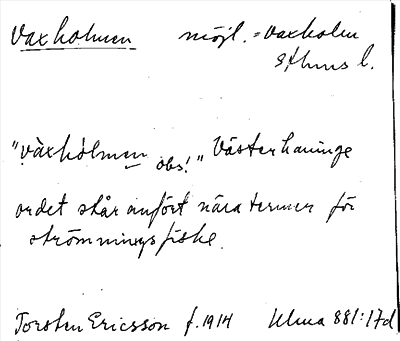 Vaxholmen möjl. = vaxholm
Sthms l.
"vàxhólmen obs!" Västerhaninge
ordet står anfört nära termer för
strömmingsfiske.
Torsten Ericsson f. 1914 Ulma 881:17d